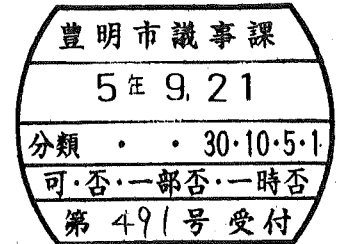 豊明市議事課
5年 9. 21
分類 ・ ・ 30・10・5・1
可・否・一部否・一時否
第 491号 受付